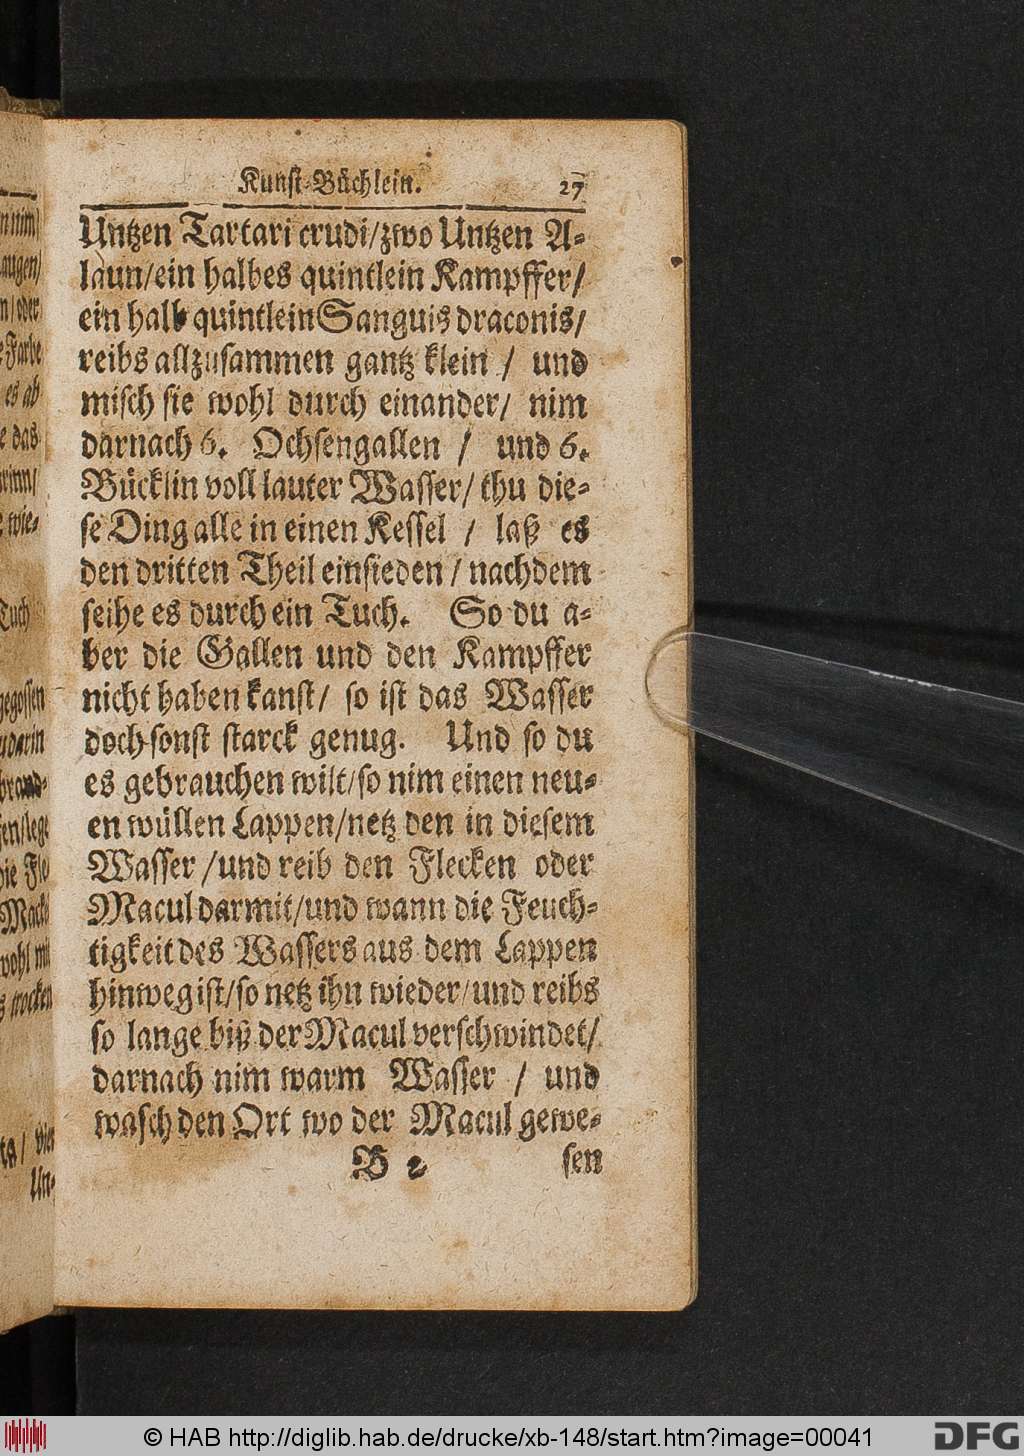 Kunst-Büchlein. 27
Untzen Tartari crudi/zwo Untzen A-
laun/ein halbes quintlein Kampffer/
ein halb quintlein Sanguis draconis/
reibs allzusammen gantz klein / und
misch sie wohl durch einander/ nim
darnach 6. Ochsengallen / und 6.
Bücklin voll lauter Wasser/ thu die-
se Ding alle in einen Kessel / laß es
den dritten Theil einsieden / nachdem
seihe es durch ein Tuch. So du a-
ber die Gallen und den Kampffer
nicht haben kanst/ so ist das Wasser
doch sonst starck genug. Und so du
es gebrauchen wilt/so nim einen neu-
en wüllen Lappen/netz den in diesem
Wasser /und reib den Flecken oder
Macul darmit/und wann die Feuch-
tigkeit des Wassers aus dem Lappen
hinweg ist/so netz ihn wieder/und reibs
so lange biß der Macul verschwindet/
darnach nim warm Wasser / und
wasch den Ort wo der Macul gewe-
B 2 sen
nim/
augen/
n/oder
Farbe
es ab
das
rinn/
wie-
Tuch
gegossen
darin
brand-
die
wohl mit
trocken
Un-
© HAB http://diglib.hab.de/drucke/xb-148/start.htm?image=00041
DFG